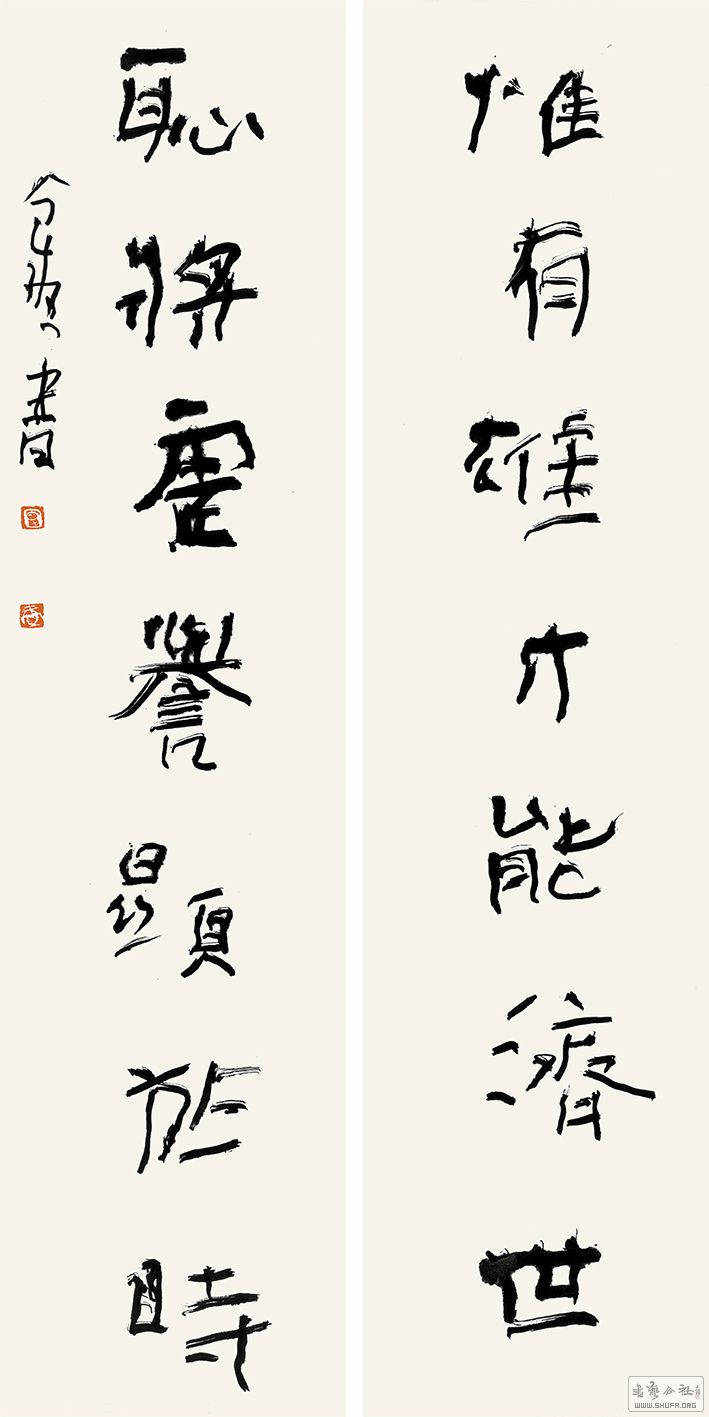 惟有雄才能濟世
恥將虛譽顯於時
書
WWW.SHUFA.ORG